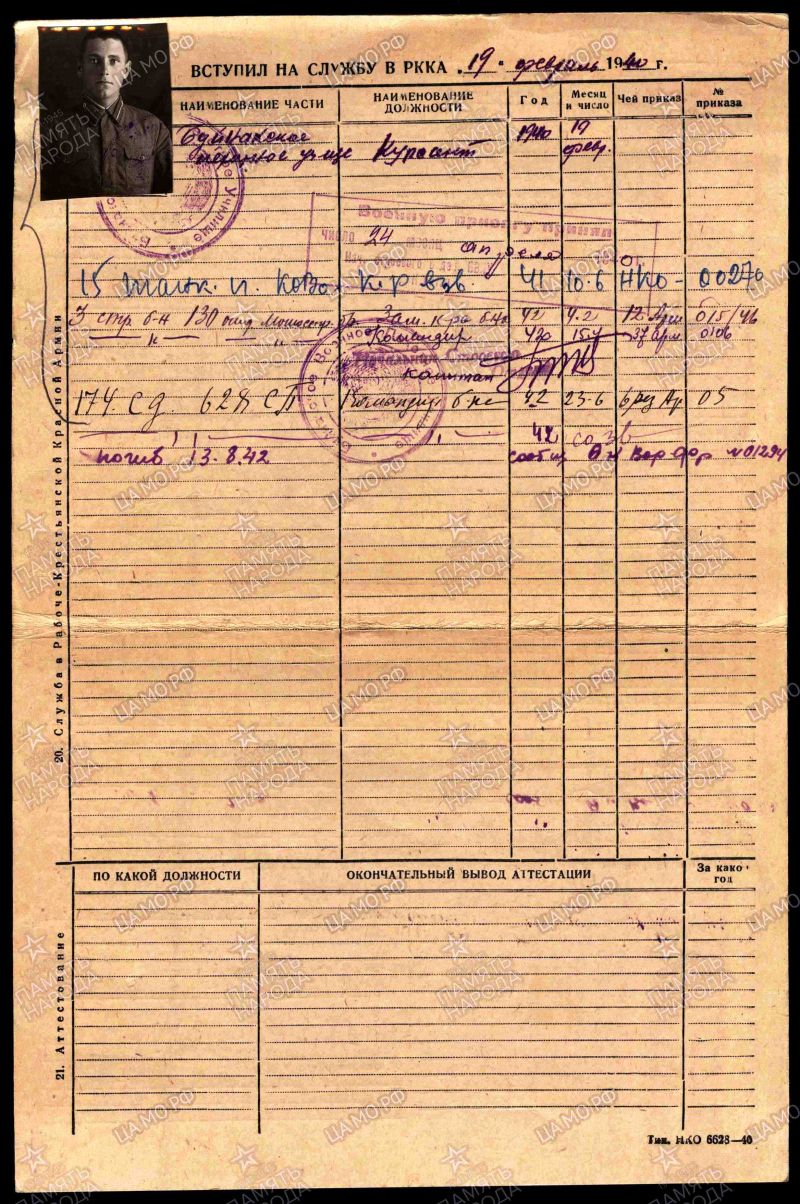 ВСТУПИЛ НА СЛУЖБУ В РККА „19“ февраль 1940 г.
НАИМЕНОВАНИЕ ЧАСТИ НАИМЕНОВАНИЕ ДОЛЖНОСТИ Год Месяц и число Чей приказ № приказа
Курсант 1940 19 февр.
Военную присягу принял
число 24 месяц апреля
15 танк. п. КОВО К-р взв 41 10.6 НКО - 00270
3 стр. б-н 130 отд. мотостр. бр Зам. к-ра б-на 42 4.2 12 Арм 015/46
— „ — — „ — Командир 42 15.4 37 Арм 0106
капитан
174 СД 628 СП Командир б-на 42 23-6 6 рез Ар 05
погиб 13.8.42 42 сообщ Вор Фр №01294
20. Служба в Рабоче-Крестьянской Красной Армии
ПО КАКОЙ ДОЛЖНОСТИ ОКОНЧАТЕЛЬНЫЙ ВЫВОД АТТЕСТАЦИИ За како год
21. Аттестование
Тип. НКО 6628—40
ПАМЯТЬ НАРОДА
ЦАМО.РФ